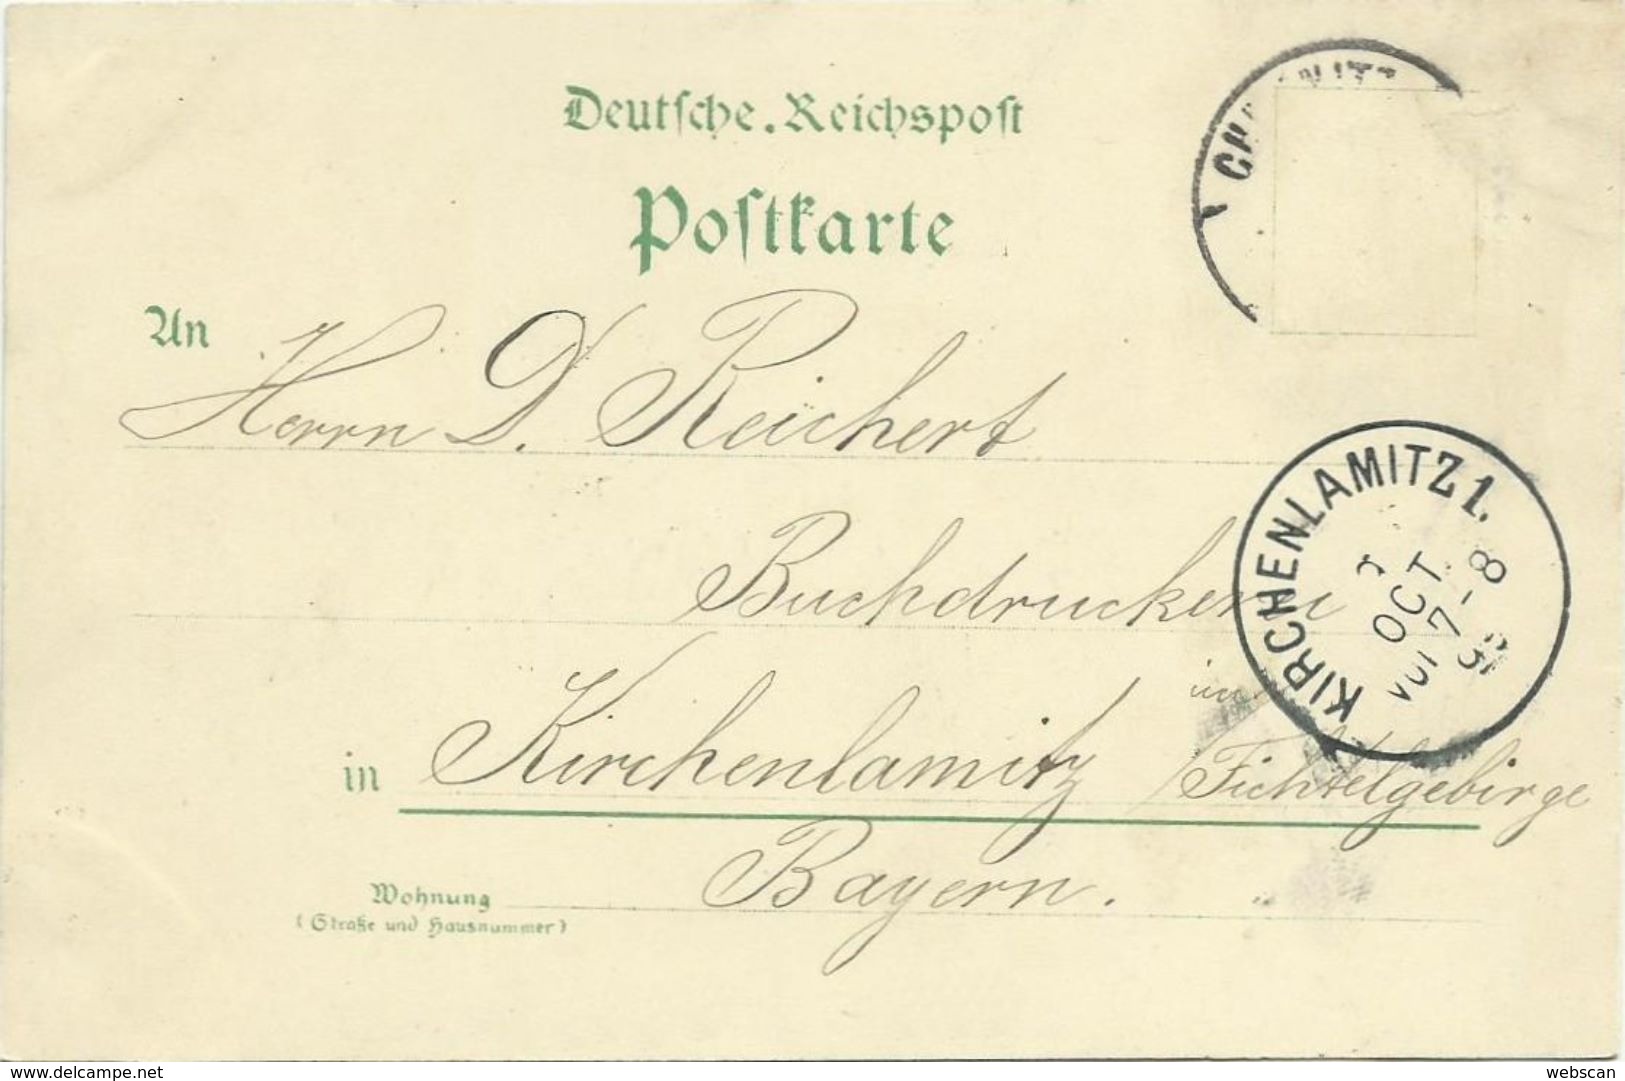 Deutsche Reichspost
Postkarte
An
Herrn D. Reichert
Buchdruckerei
im
in Kirchenlamitz / Fichtelgebirge
Bayern.
Wohnung
(Straße und Hausnummer)
KIRCHENLAMITZ 1.
OCT
7-8
www.delcampe.net
webscan